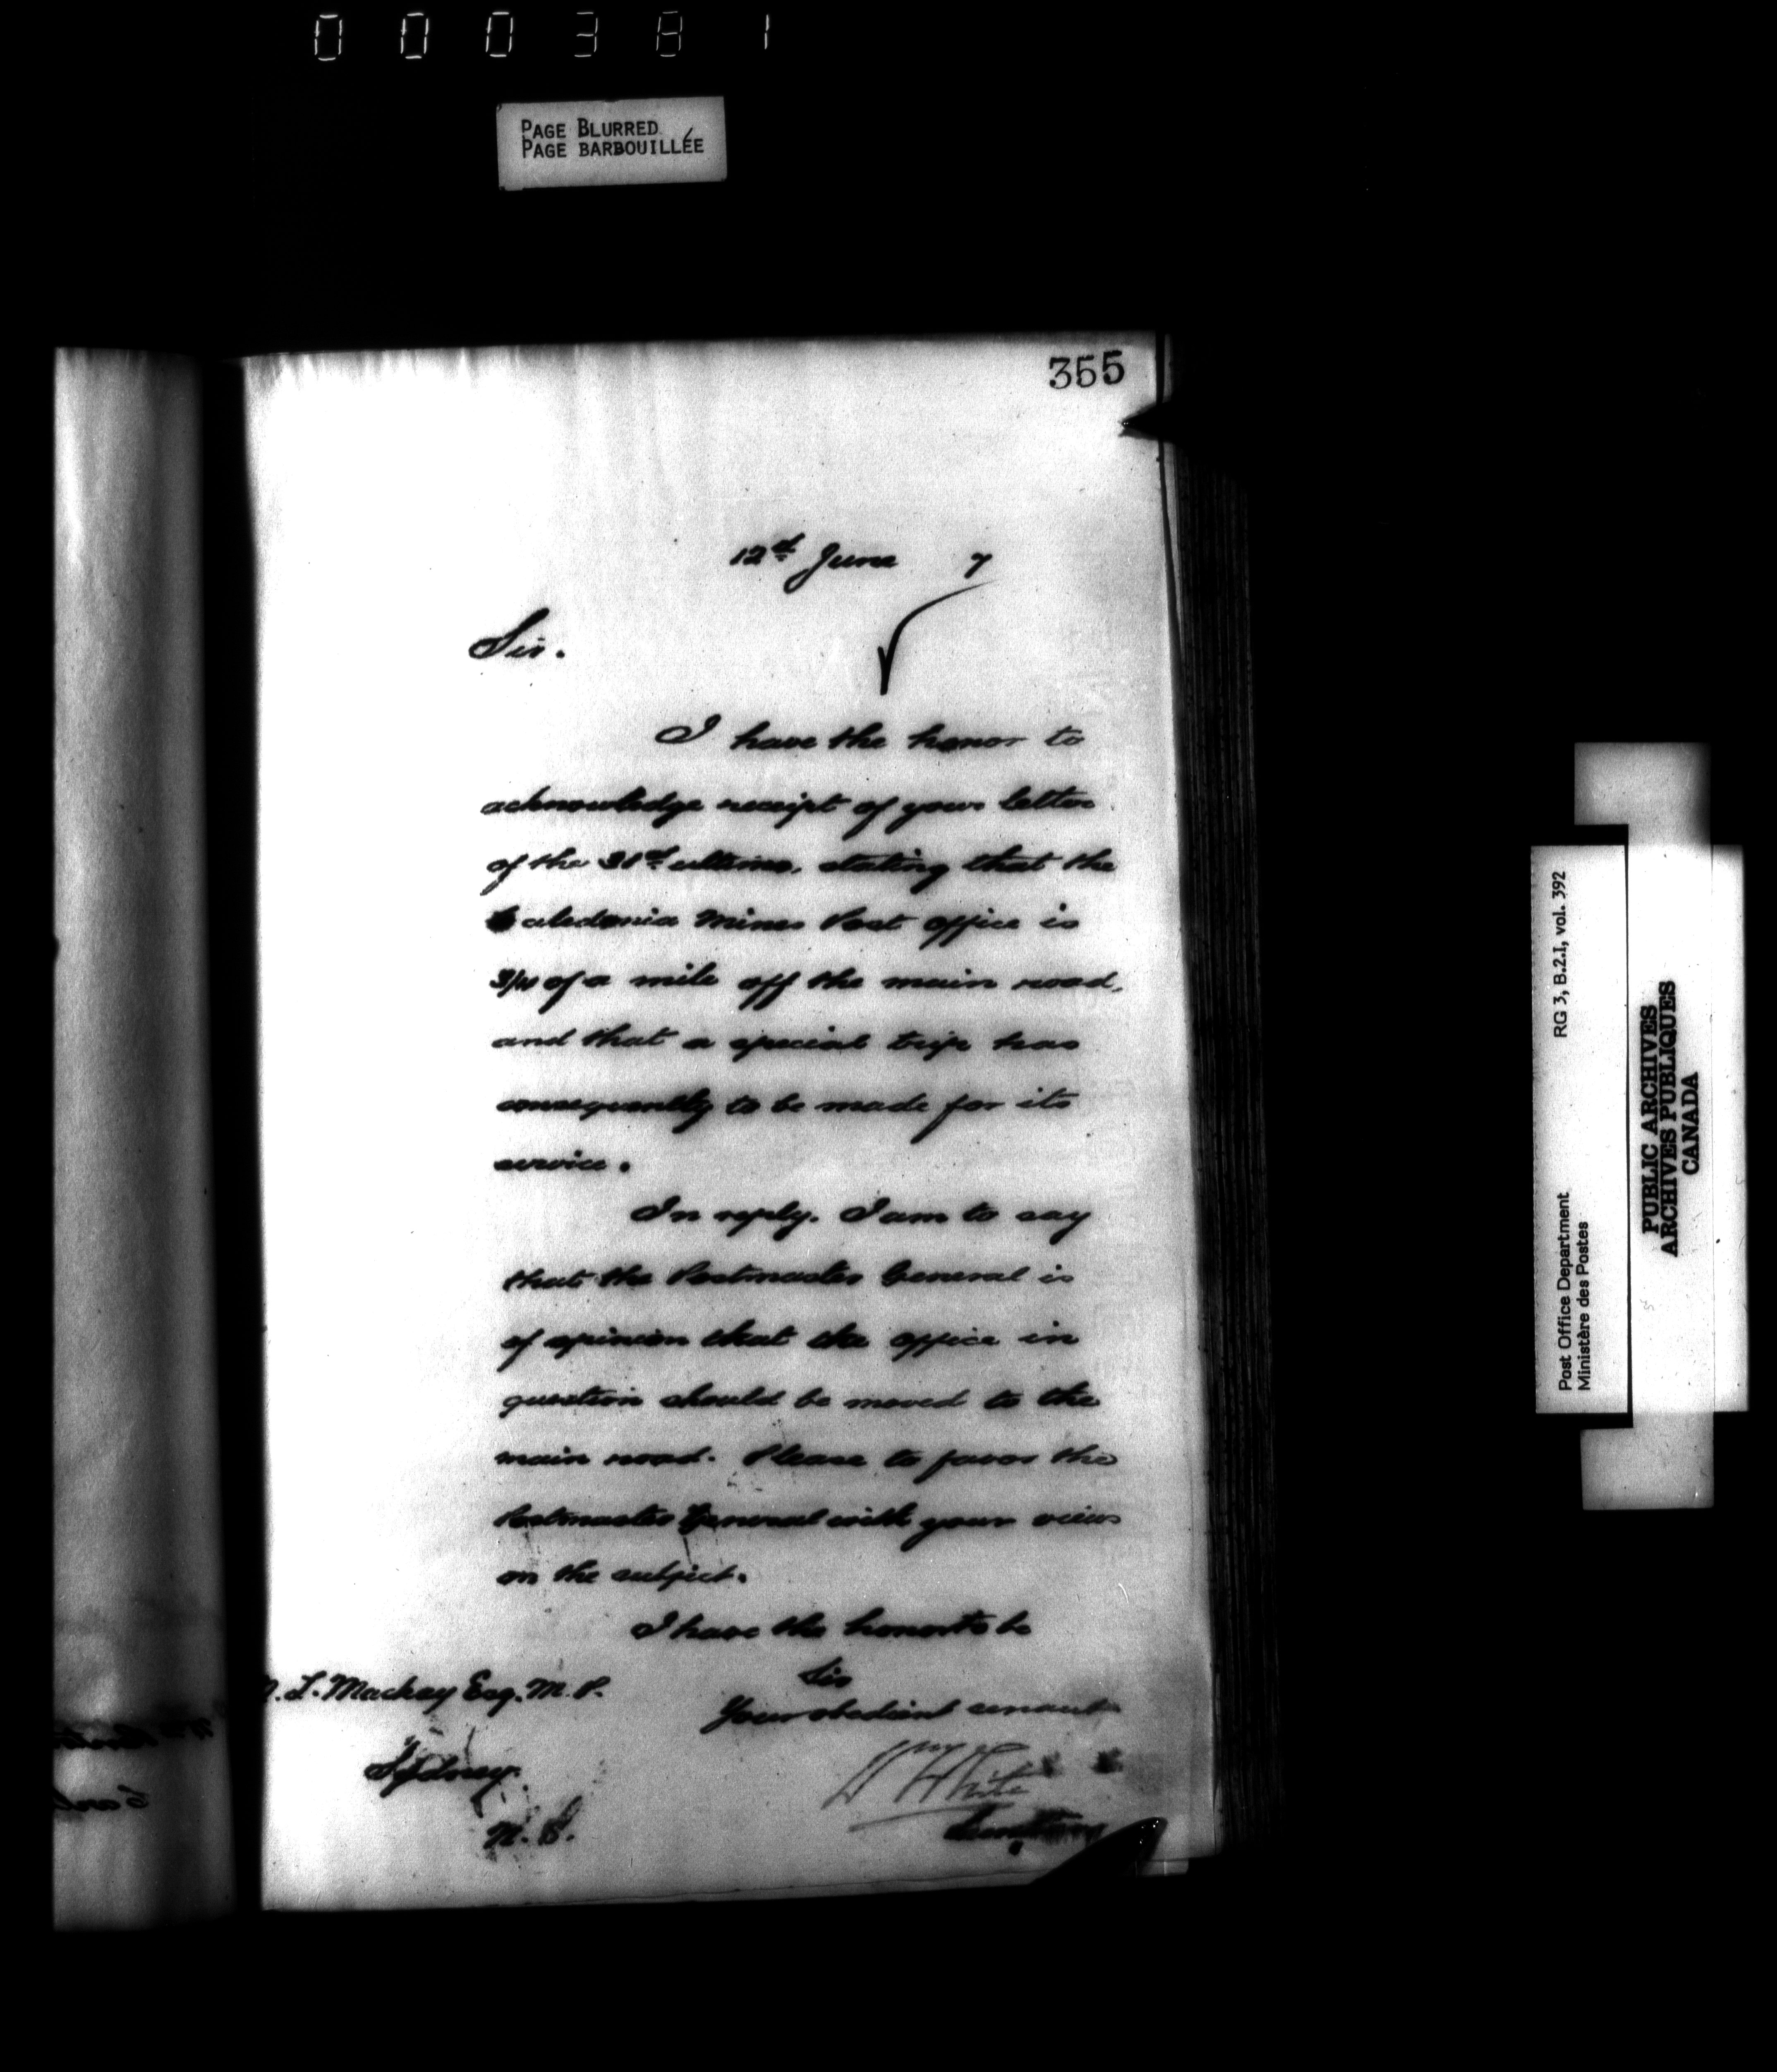 000381
PAGE BLURRED
PAGE BARBOUILLÉE
355
12th June 7
Sir.
I have the honor to
acknowledge receipt of your letter
of the 31st ultimo, stating that the
Caledonia Mines Post office is
3/4 of a mile off the main road,
and that a special trip has
consequently to be made for its
service.
In reply. I am to say
that the Postmaster General is
of opinion that the office in
question should be moved to the
main road. Please to favor the
Postmaster General with your views
on the subject.
I have the honor to be
Sir
Your obedient servant
Wm White
Secretary
L. Mackay Esq. M.P.
Sydney.
N. S.
Post Office Department RG 3, B.2.I, vol. 392
Ministère des Postes
PUBLIC ARCHIVES
ARCHIVES PUBLIQUES
CANADA